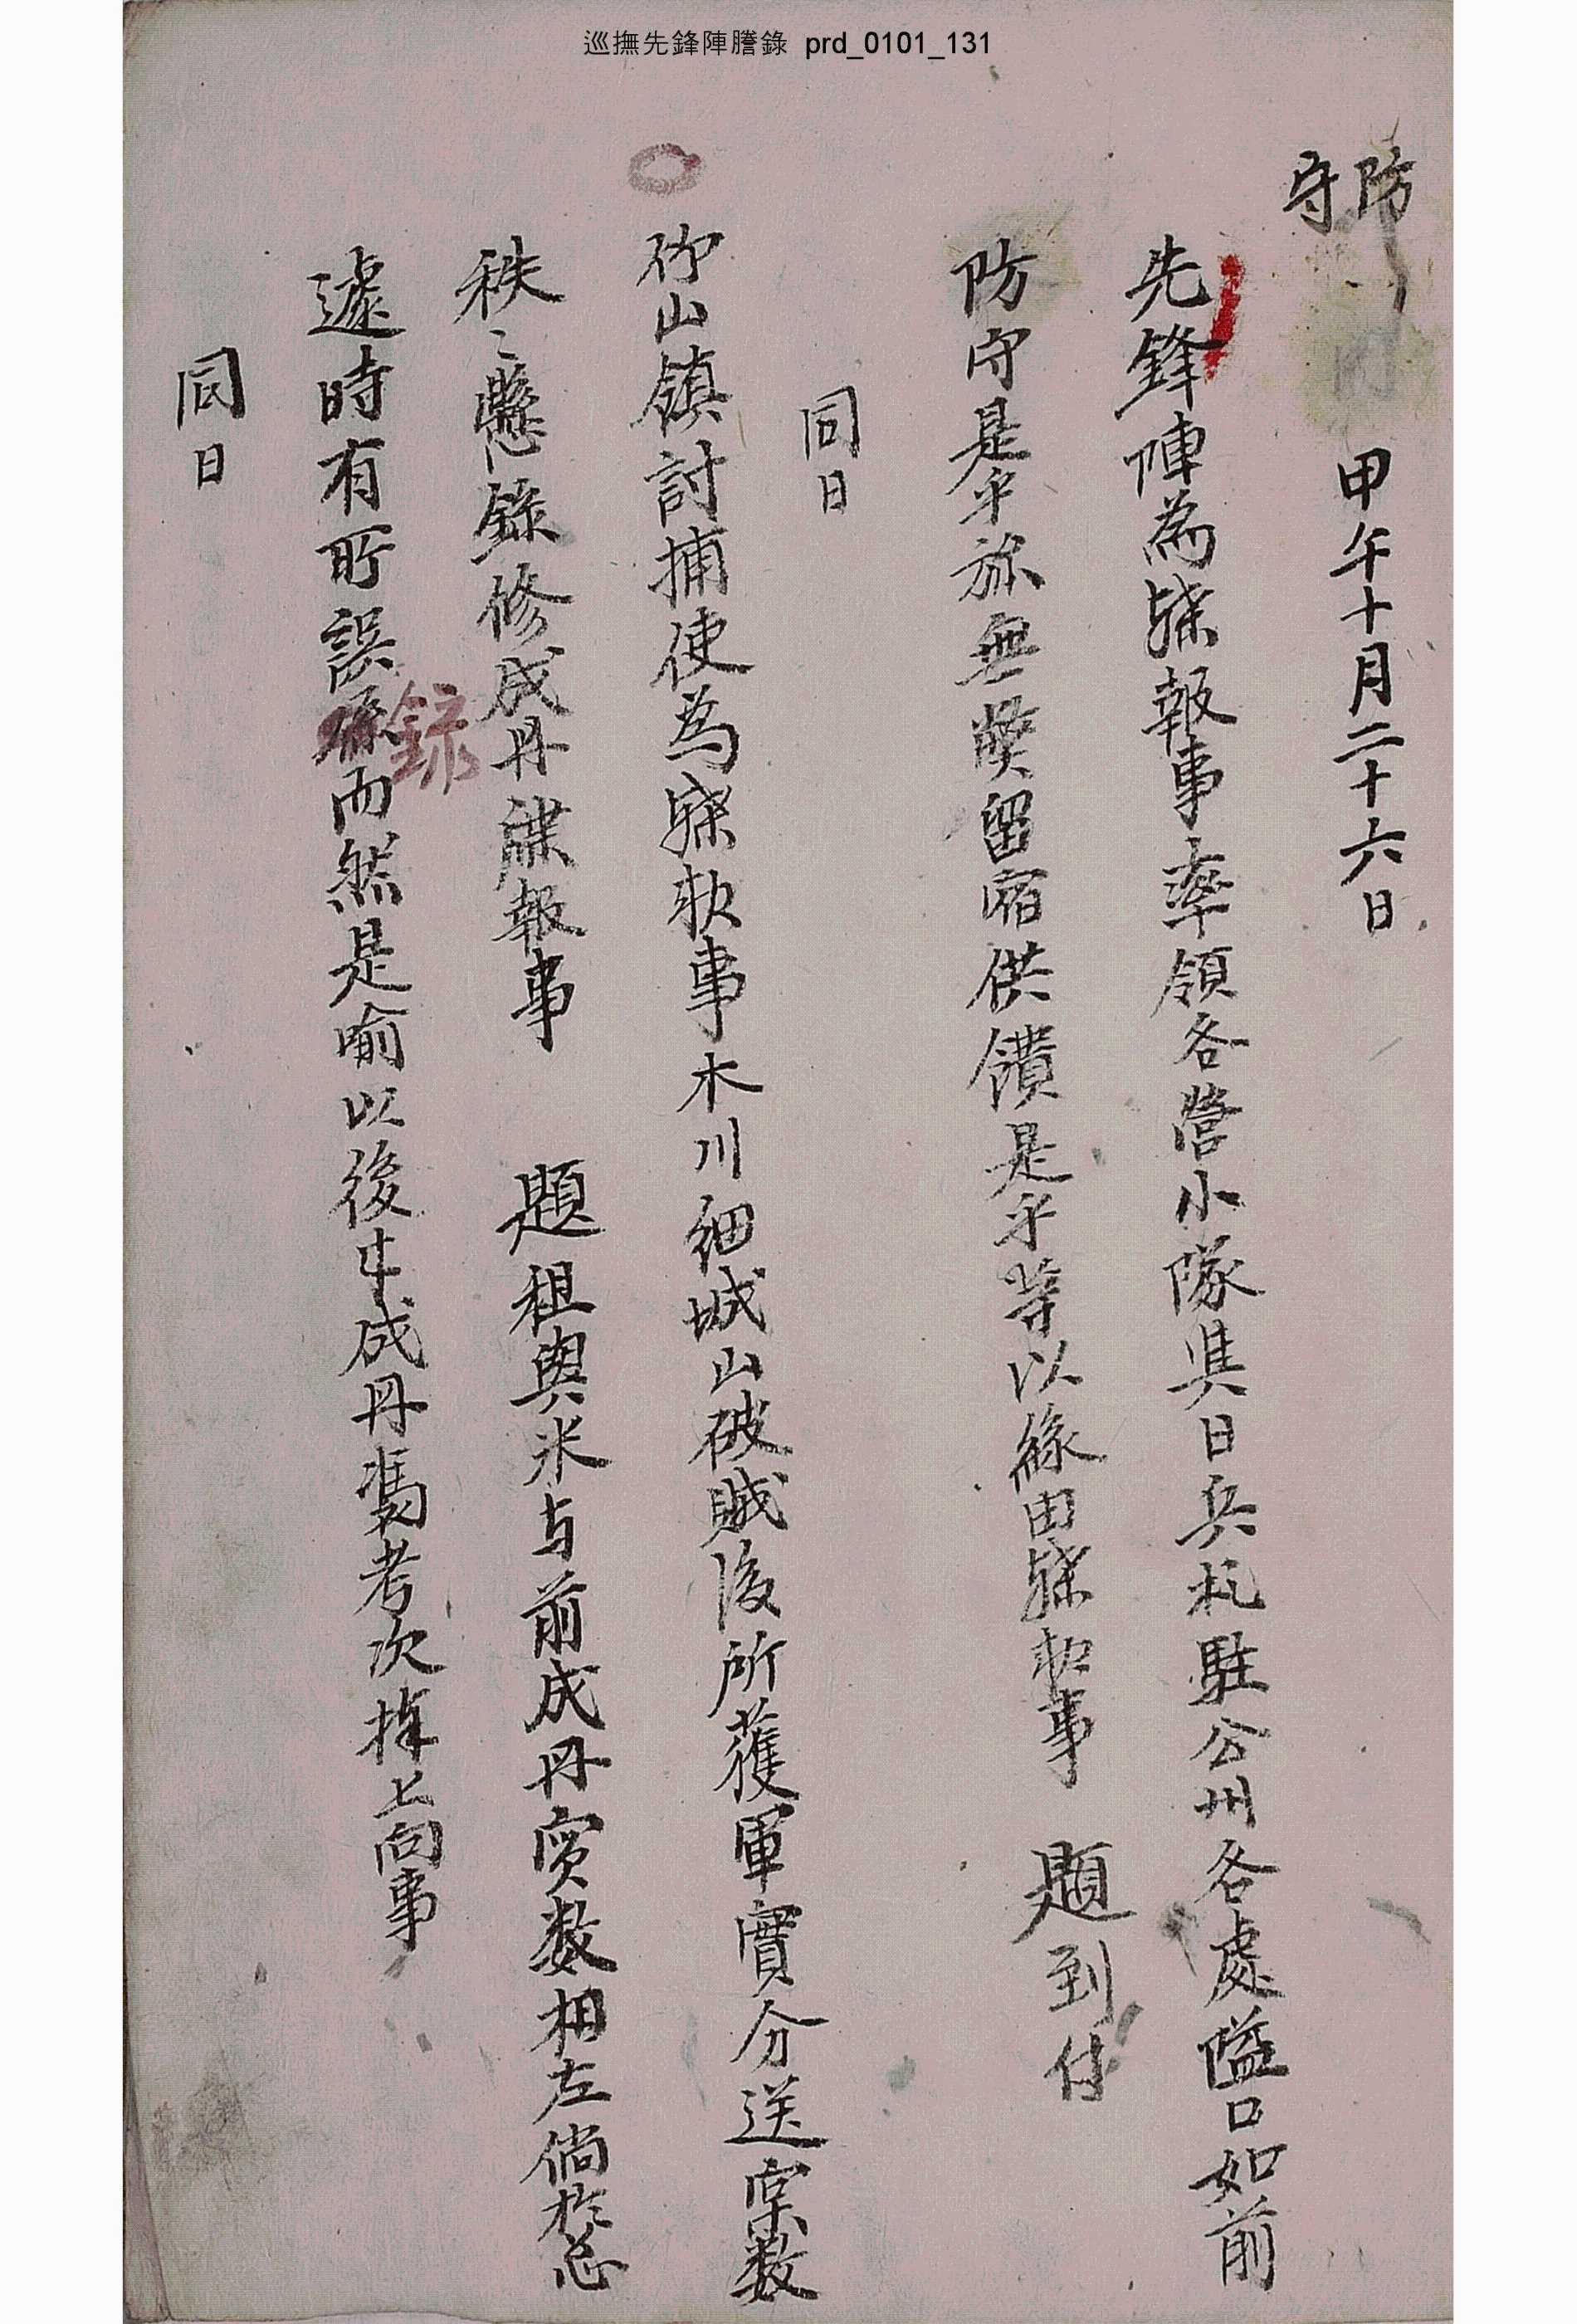 巡撫先鋒陣謄錄 prd_0101_131
防守
甲午十月二十六日
先鋒陣為牒報事率領各營小隊與日兵札駐公州各處隘口如前
防守是乎旀無弊留宿供饋是乎等以緣由牒報事 題到付
同日
砂山鎭討捕使為牒報事木川細城山破賊後所獲軍實分送實數
秩〻懸錄修成冊牒報事 題租與米与前成冊實数相左倘於忩
遽時有所誤錄而然是喩以後件成冊憑考次捧上向事
錄
同日